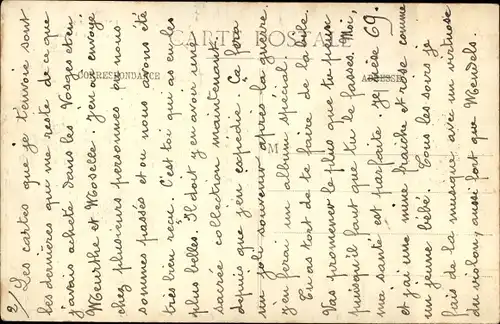 CARTE POSTALE
CORRESPONDANCE
ADRESSE
M
2/ Les cartes que je t'envoie sont
les dernières qui me reste de ce que
j'avais acheté dans les Vosges et en
Meurthe et Moselle. J'en ai envoyé
chez plusieurs personnes où nous
sommes passés et où nous avons été
très bien reçu. C'est toi qui as eu les
plus belles. Il doit y en avoir une
sacrée collection maintenant
depuis que j'en expédie. Ça fera
un joli souvenir après la guerre.
J'en ferai un album spécial.
Tu as tort de te faire de la bile.
Vas promener le plus que tu peux
puisqu'il faut que tu le fasses. Moi,
ma santé est parfaite. Je pèse 69.
et j'ai une mine fraîche et rose comme
un jeune bébé. Tous les soirs je
fais de la musique avec un virtuose
du violon, aussi fort que Mendels